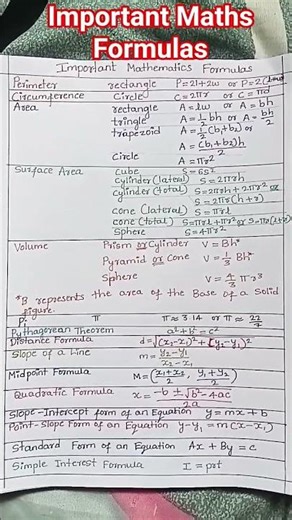 Important Maths
Formulas
Important Mathematics Formulas
Perimeter rectangle P=2l+2w or P=2(l+w)
Circumference Circle C=2πr or C=πd
Area rectangle A=lw or A=bh
tringle A=1/2 bh or A=bh/2
trapezoid A=1/2(b₁+b₂) or
A=(b₁+b₂)h/2
Circle A=πr²
Surface Area Cube S=6s²
cylinder (lateral) S=2πrh
cylinder (total) S=2πrh+2πr² or
S=2πr(h+r)
cone (lateral) S=πrl
cone (total) S=πrl+πr² or S=πr(l+r)
Sphere S=4πr²
Volume Prism or Cylinder V=Bh*
Pyramid or Cone V=1/3 Bh*
Sphere V=4/3 πr3
*B represents the area of the Base of a Solid
figure.
Pi π π≈3.14 or π≈22/7
Pythagorean Theorem a²+b²=c²
Distance Formula d=√(x₁-x₂)²+(y₁-y₂)²
Slope of a Line m=y₂-y₁/x₂-x₁
Midpoint Formula M=(x₁+x₂/2, y₁+y₂/2)
Quadratic Formula x=-b±√b²-4ac/2a
Slope-Intercept form of an Equation y=mx+b
Point-Slope Form of an Equation y-y₁=m(x-x₁)
Standard Form of an Equation Ax+By=c
Simple Interest Formula I=prt